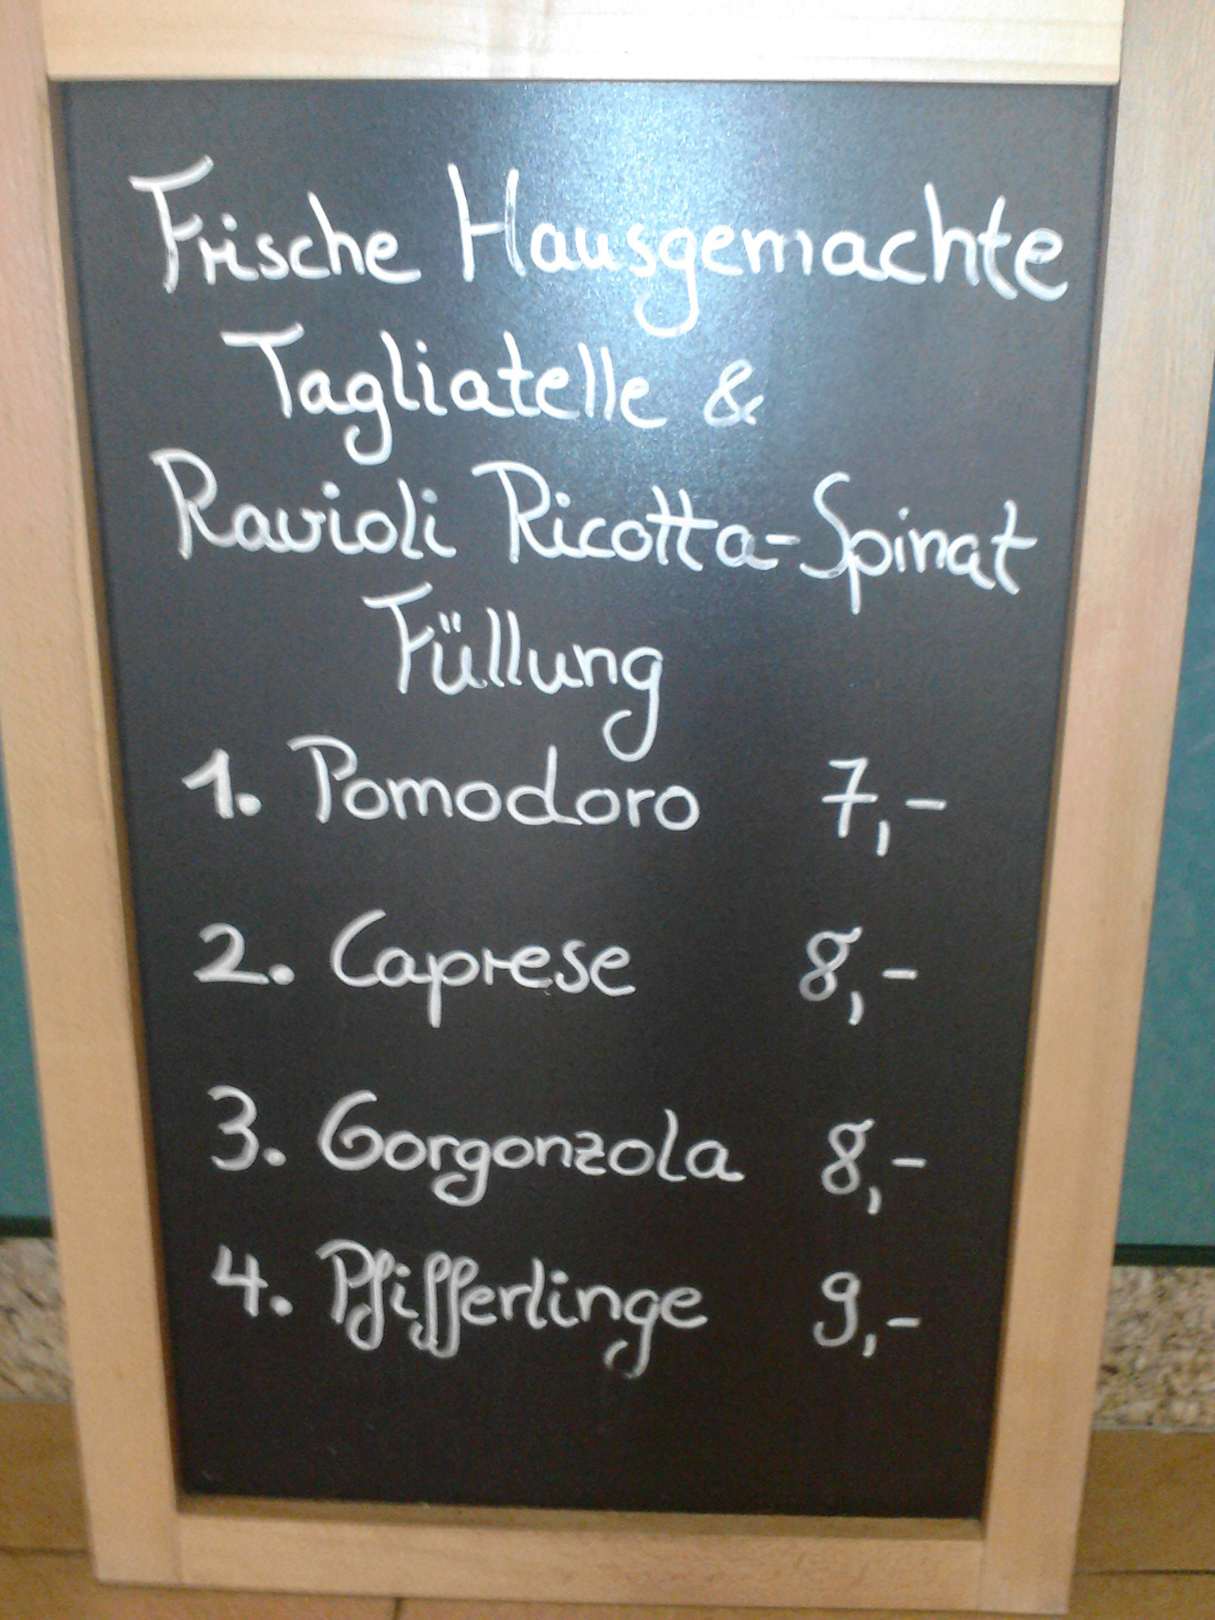 Frische Hausgemachte
Tagliatelle &
Ravioli Ricotta-Spinat
Füllung
1. Pomodoro 7,-
2. Caprese 8,-
3. Gorgonzola 8,-
4. Pfifferlinge 9,-